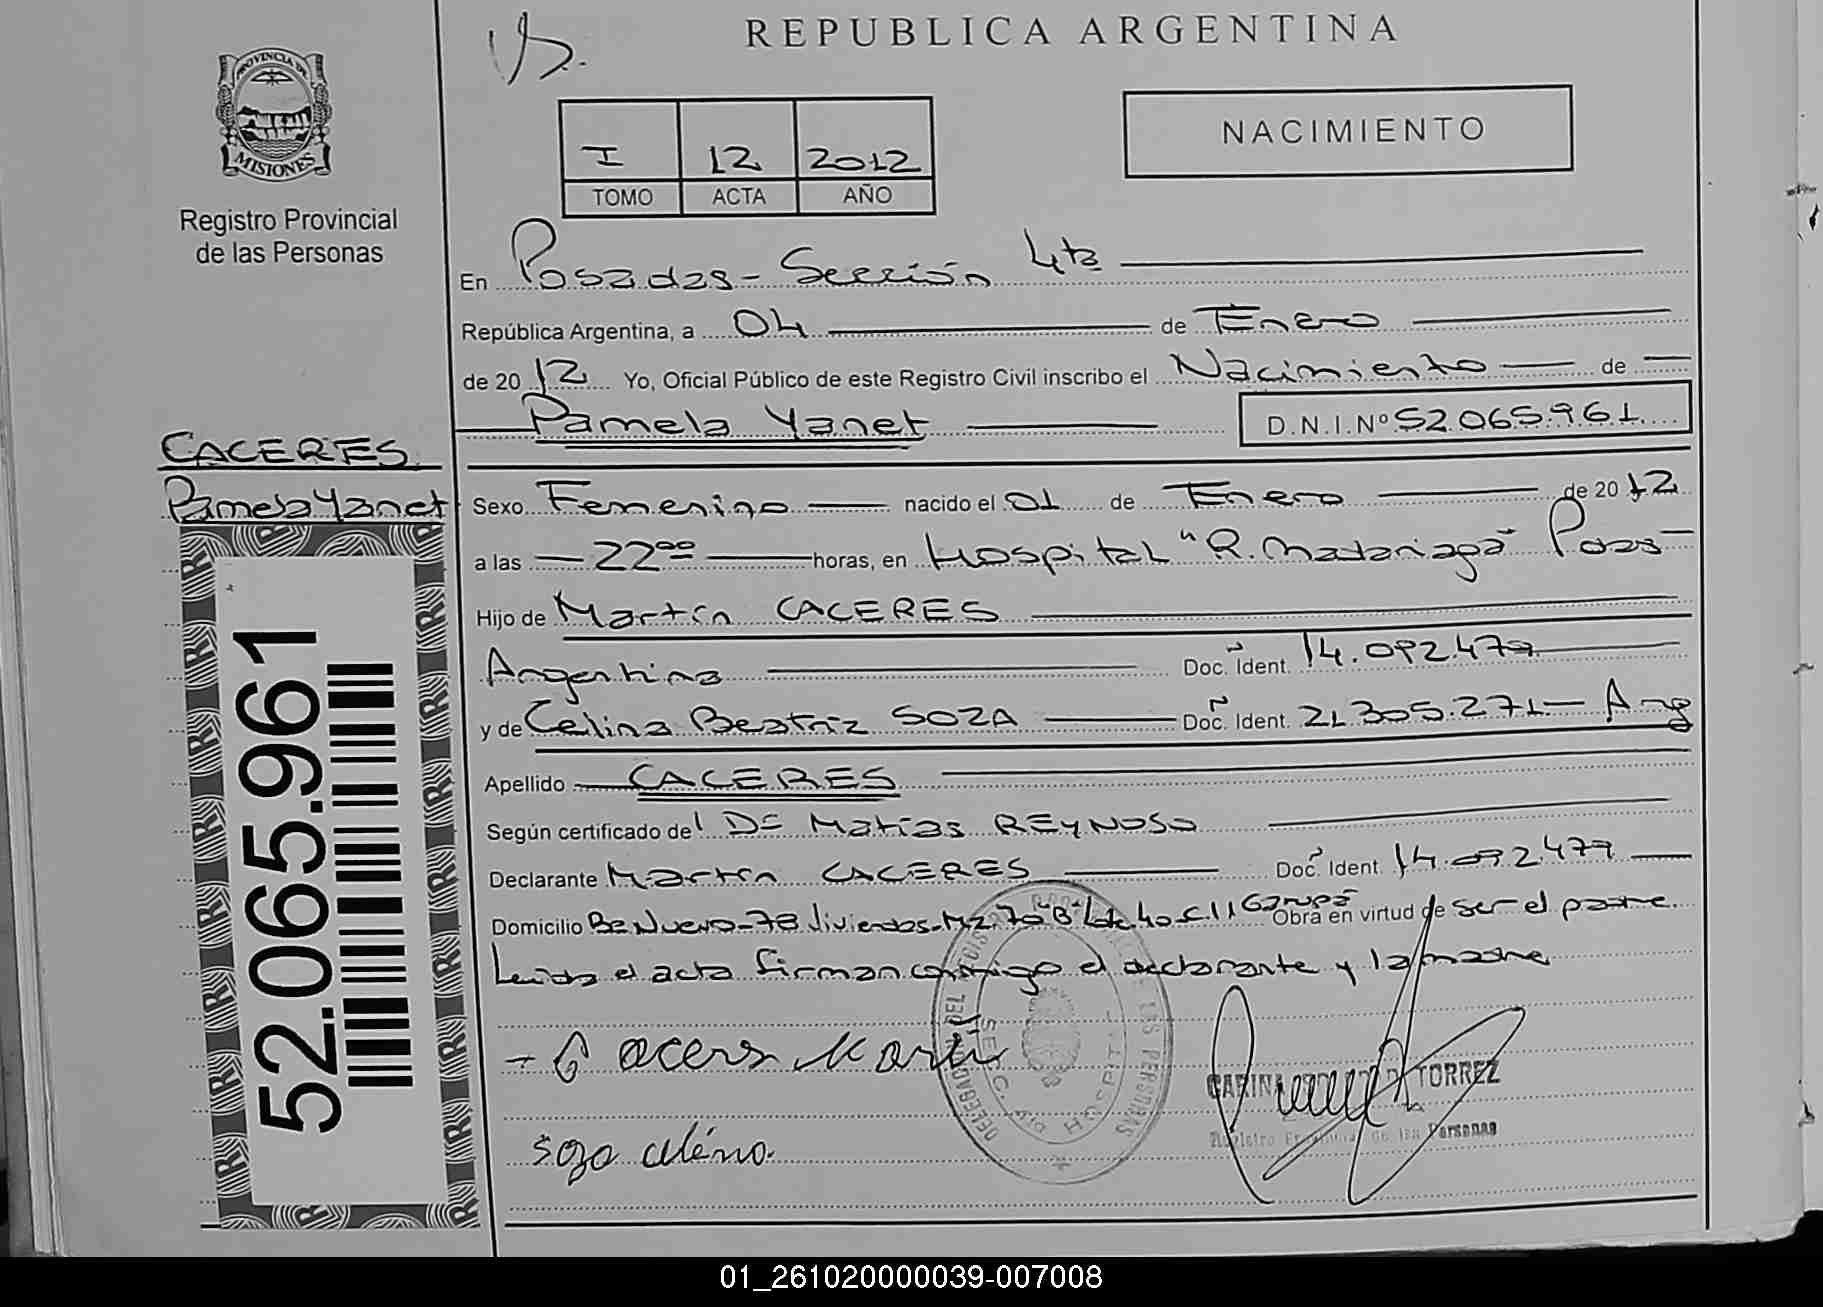 REPUBLICA ARGENTINA
PROVINCIA DE
MISIONES
Registro Provincial
de las Personas
NACIMIENTO
I 12 2012
TOMO ACTA AÑO
En Posadas - Sección 4ta
República Argentina, a 04 de Enero
de 2012 Yo, Oficial Público de este Registro Civil inscribo el Nacimiento de
Pamela Yanet D.N.I.Nº 52.065.961
CACERES
Pamela Yanet
Sexo Femenino nacido el 01 de Enero de 2012
a las 22ºº horas, en Hospital "R. Madariaga" Pdas
Hijo de Martín CACERES
Argentina Doc. Ident. 14.092.479
y de Celina Beatriz SOZA Doc. Ident. 21.305.271 - Arg
Apellido CACERES
Según certificado del Dr Matías REYNOSO
Declarante Martín CACERES Doc. Ident. 14.092.479
Domicilio Bº Nuevo - 78 Viviendas - Mz. 70 "B" Lote 40 C. 11 Garupá Obra en virtud de ser el padre
Leída el acta firman conmigo el declarante y la madre
Caceres Martin
Soza Celina
52.065.961
DELEGADO DEL REGISTRO LAS PERSONAS
SECC. 4ta HOSPITAL
CARINA TORREZ
Registro Provincial de las Personas
01_261020000039-007008